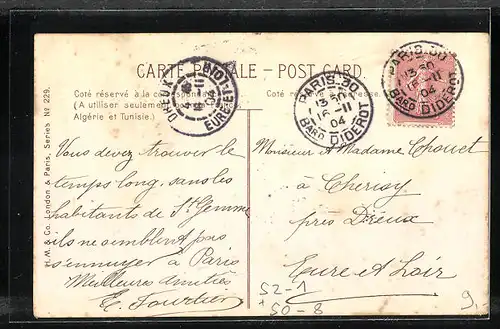 CARTE POSTALE - POST CARD.
DREUX
EURE-ET-LOIR
PARIS-30
13 30
16-11
04
BARD DIDEROT
PARIS-30
13 30
16-11
04
BARD DIDEROT
Coté réservé à la correspondance
(A utiliser seulement
Algérie et Tunisie.)
H.M. & Co. London & Paris, Series No 229.
Vous devez trouver le
temps long, sans les
habitants de St Gemme
ils ne semblent pas
s'ennuyer à Paris
Meilleures amitiés
Monsieur et Madame Chouet
à Cherisy
près Dreux
Eure et Loir
52-1
50-8
9.